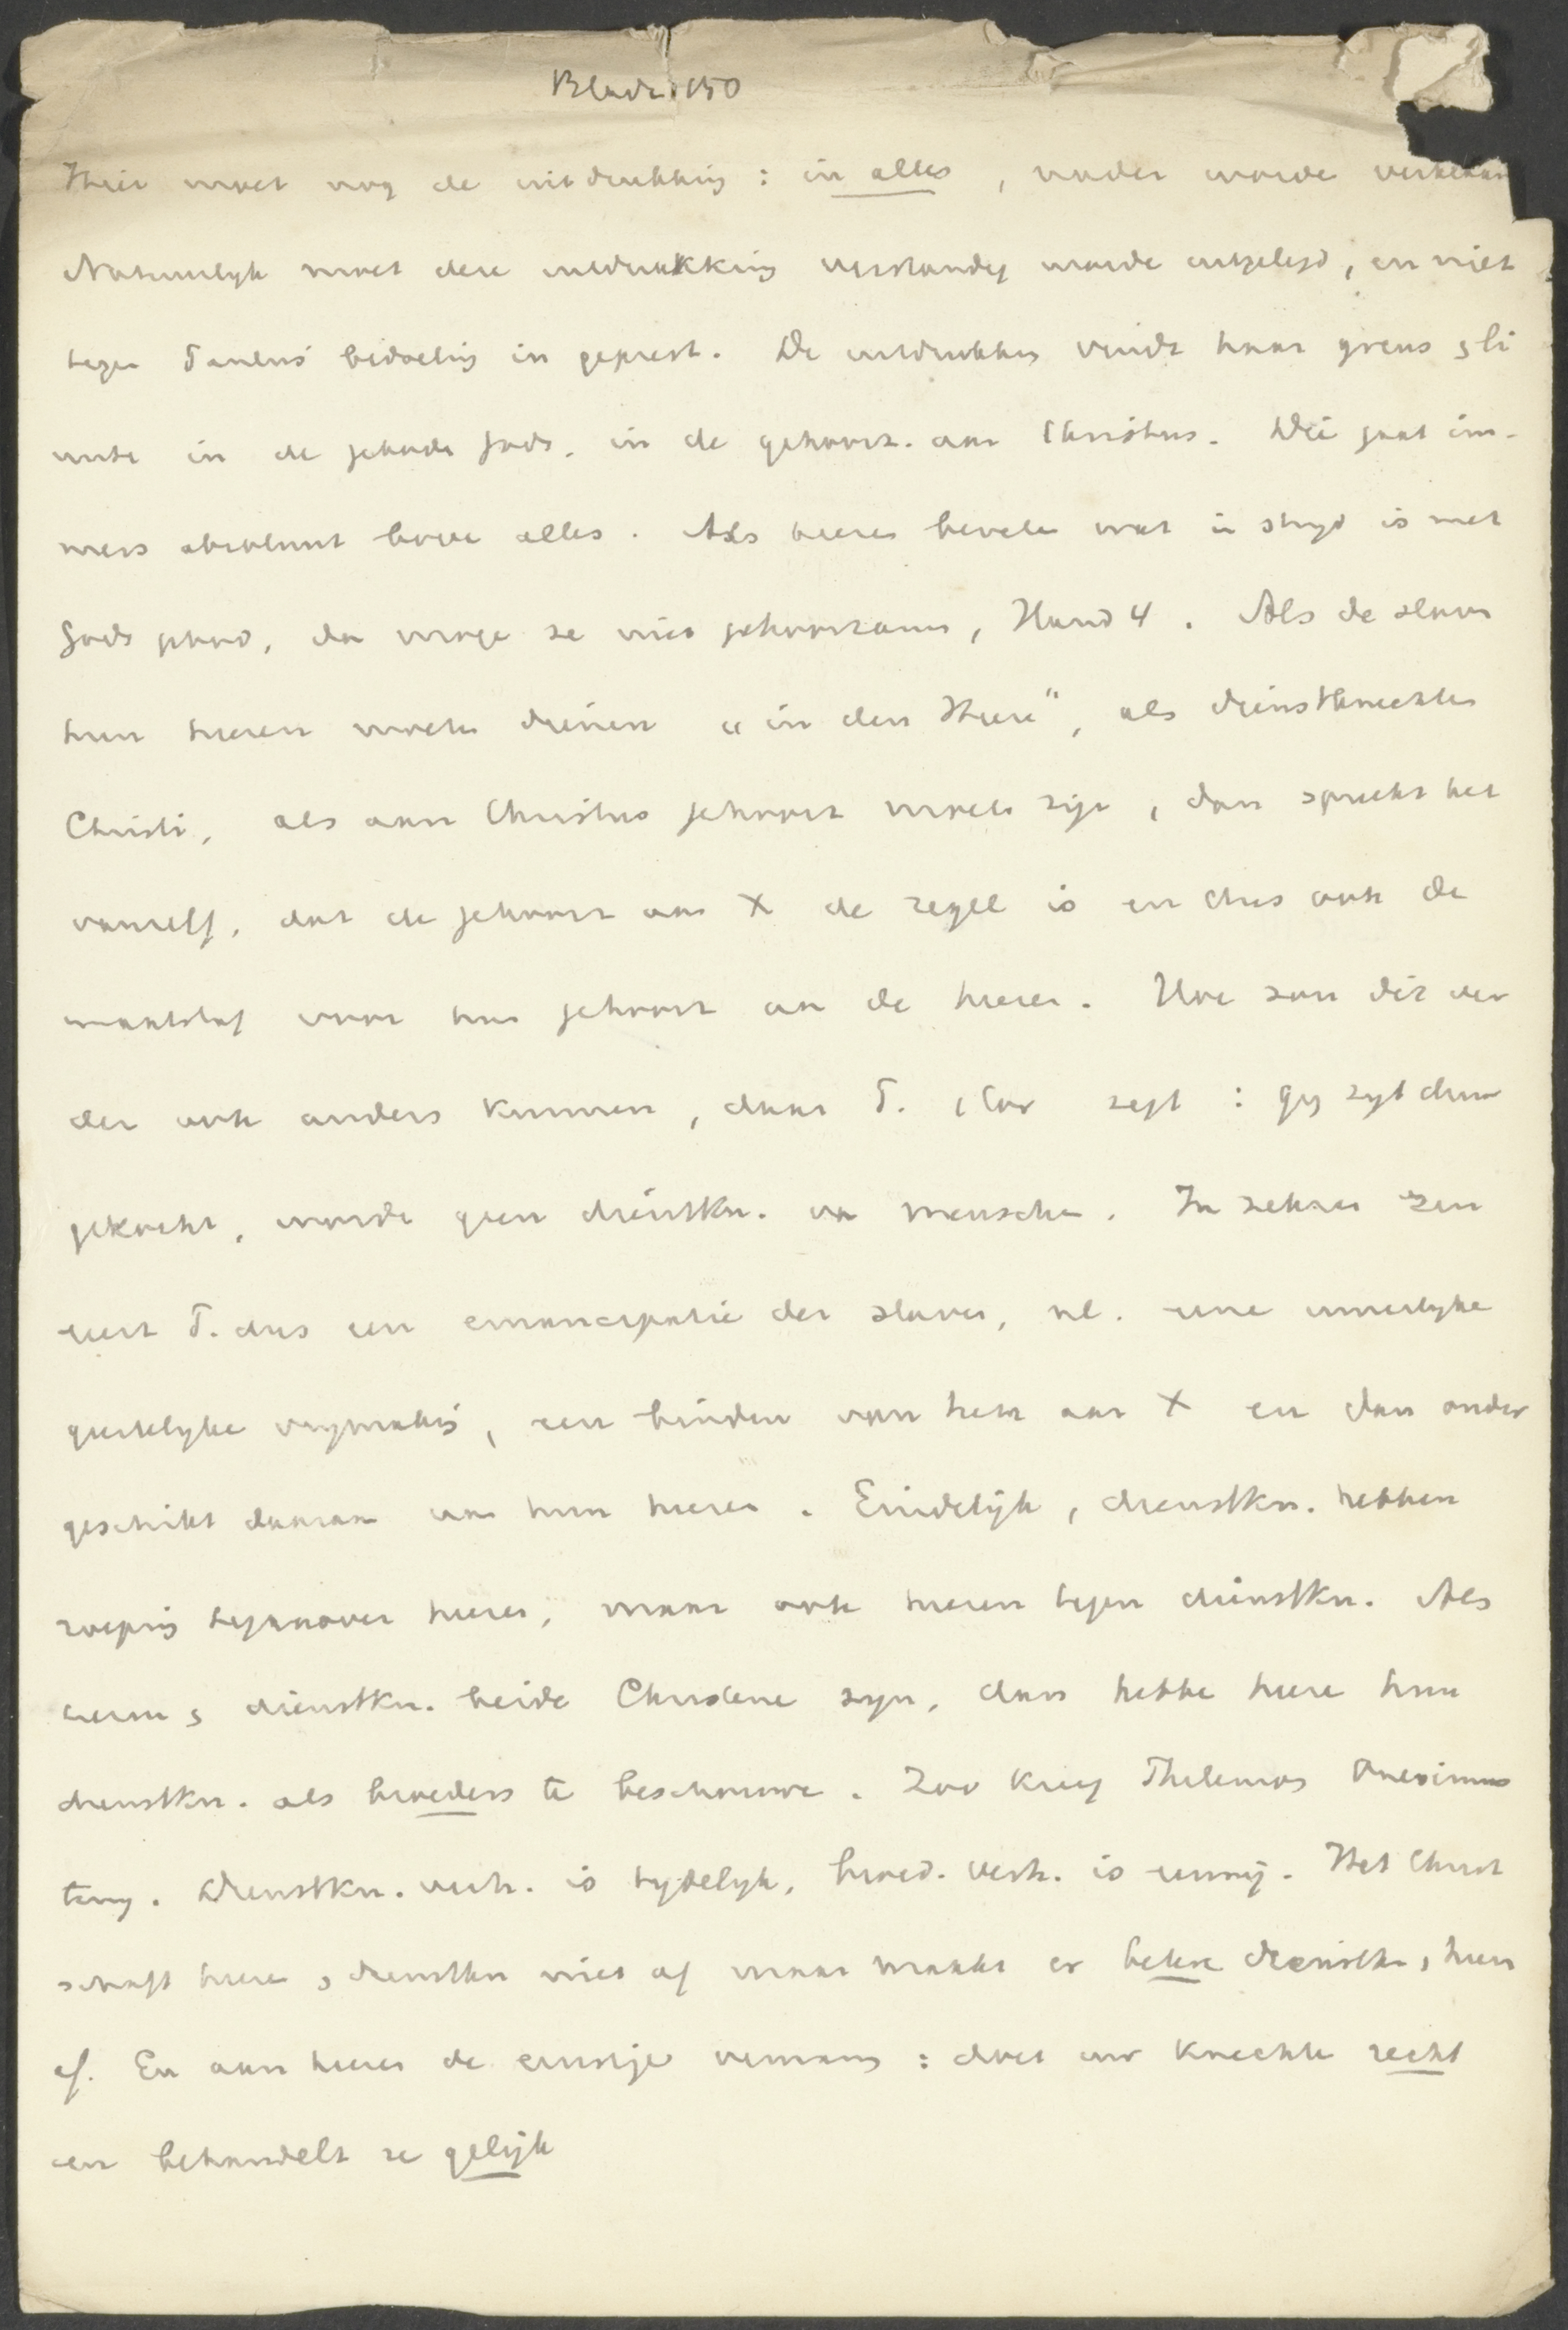 Bladz. 150
Hier moet nog de uitdrukking : in alles , nader worde verkend
Natuurlyk moet deze uitdrukking verstandig worde uitgelegd, en niet
tegen Paulus' bedoeling in geperst. De uitdrukking vindt haar grens & li
miete in de gebode Gods, in de gehoorz. aan Christus. Die gaat im-
mers absoluut bove alles. Als heeren bevele wat in stryd is met
Gods gebod, dan moge ze niet gehoorzame, Hand 4. Als de slaven
hun heeren moete dienen "in den Heere", als dienstknechte
Christi, als aan Christus gehoorz moete zijn, dan spreekt het
vanzelf, dat de gehoorz aan X de regel is en dus ook de
maatstaf voor hun gehoorz aan de heeren. Hoe zou dit ver
der ook anders kunnen, daar P. 1 Cor zegt : gy zyt duur
gekocht, worde geen dienstkn. van mensche. In zekeren zin
eert P. dus een emancipatie der slaven, nl. eene innerlyke
geestelyke vrymaking, een binden van hem aan X en dan onder
geschikt daaraan aan hun heeren. Eindelijk, dienstkn. hebben
roeping tegenover heeren, maar ook heeren tegen dienstkn. Als
heeren & dienstkn. beide Christene zyn, dan hebbe heere hun
dienstkn. als broeders te beschouwe. Zoo kreeg Philemon Onesimus
terug. Dienstkn. verh. is tydelyk, broed. verh. is eeuwig. Het Christ
schaft heere & dienstkn niet af maar maakt er betere dienstkn, heeren
af. En aan heeren de ernstige vermaning : doet uw knechte recht
en behandelt ze gelijk